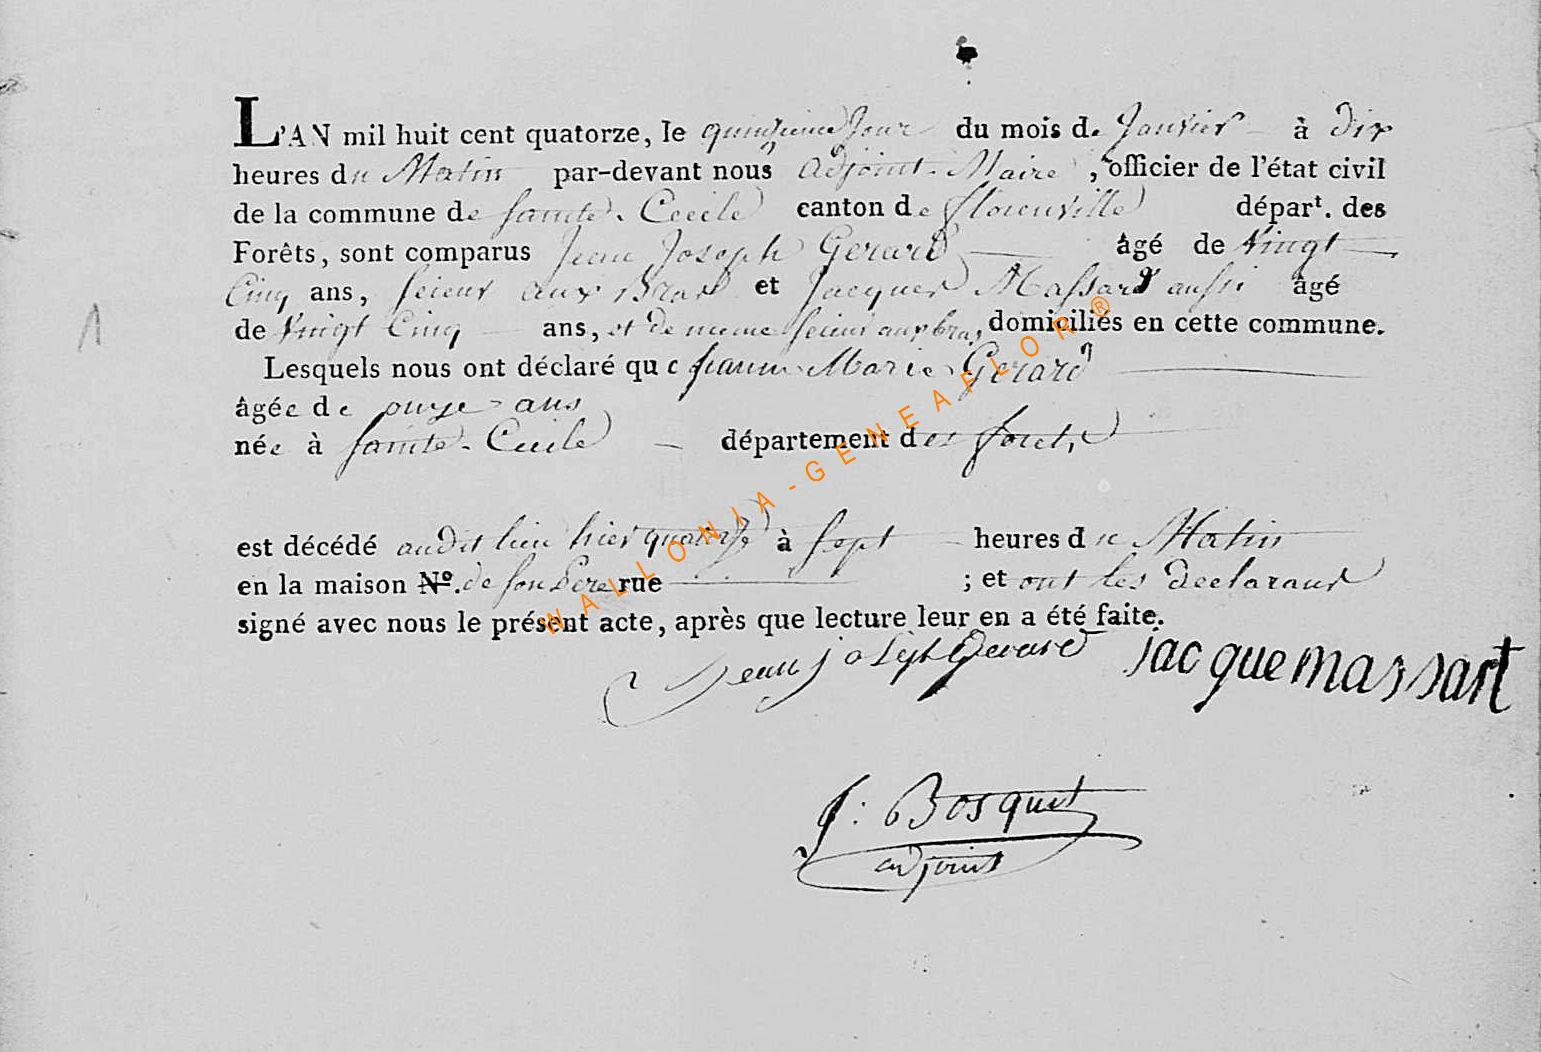 L'AN mil huit cent quatorze, le quinzieme jour du mois de Janvier à dix
heures du Matin par-devant nous adjoint Maire, officier de l'état civil
de la commune de Sainte Cecile canton de florenville départ. des
Forêts, sont comparus Jean Joseph Gerard âgé de Vingt
Cinq ans, scieur aux Bras et Jacques Massard aussi âgé
de Vingt Cinq ans, et de meme scieur aux bras, domiciliés en cette commune.
Lesquels nous ont déclaré que Marie Gerard
âgée de onze ans
née à Sainte Cecile département des forets,
est décédé audit lieu hier quatorze à sept heures du Matin
en la maison N°. de son Pere rue ; et ont les declarans
signé avec nous le présent acte, après que lecture leur en a été faite.
Jean joseph Gerard jacque massart
J: Bosquet
adjoint
1
WALLONIA-GENEAFLOR®